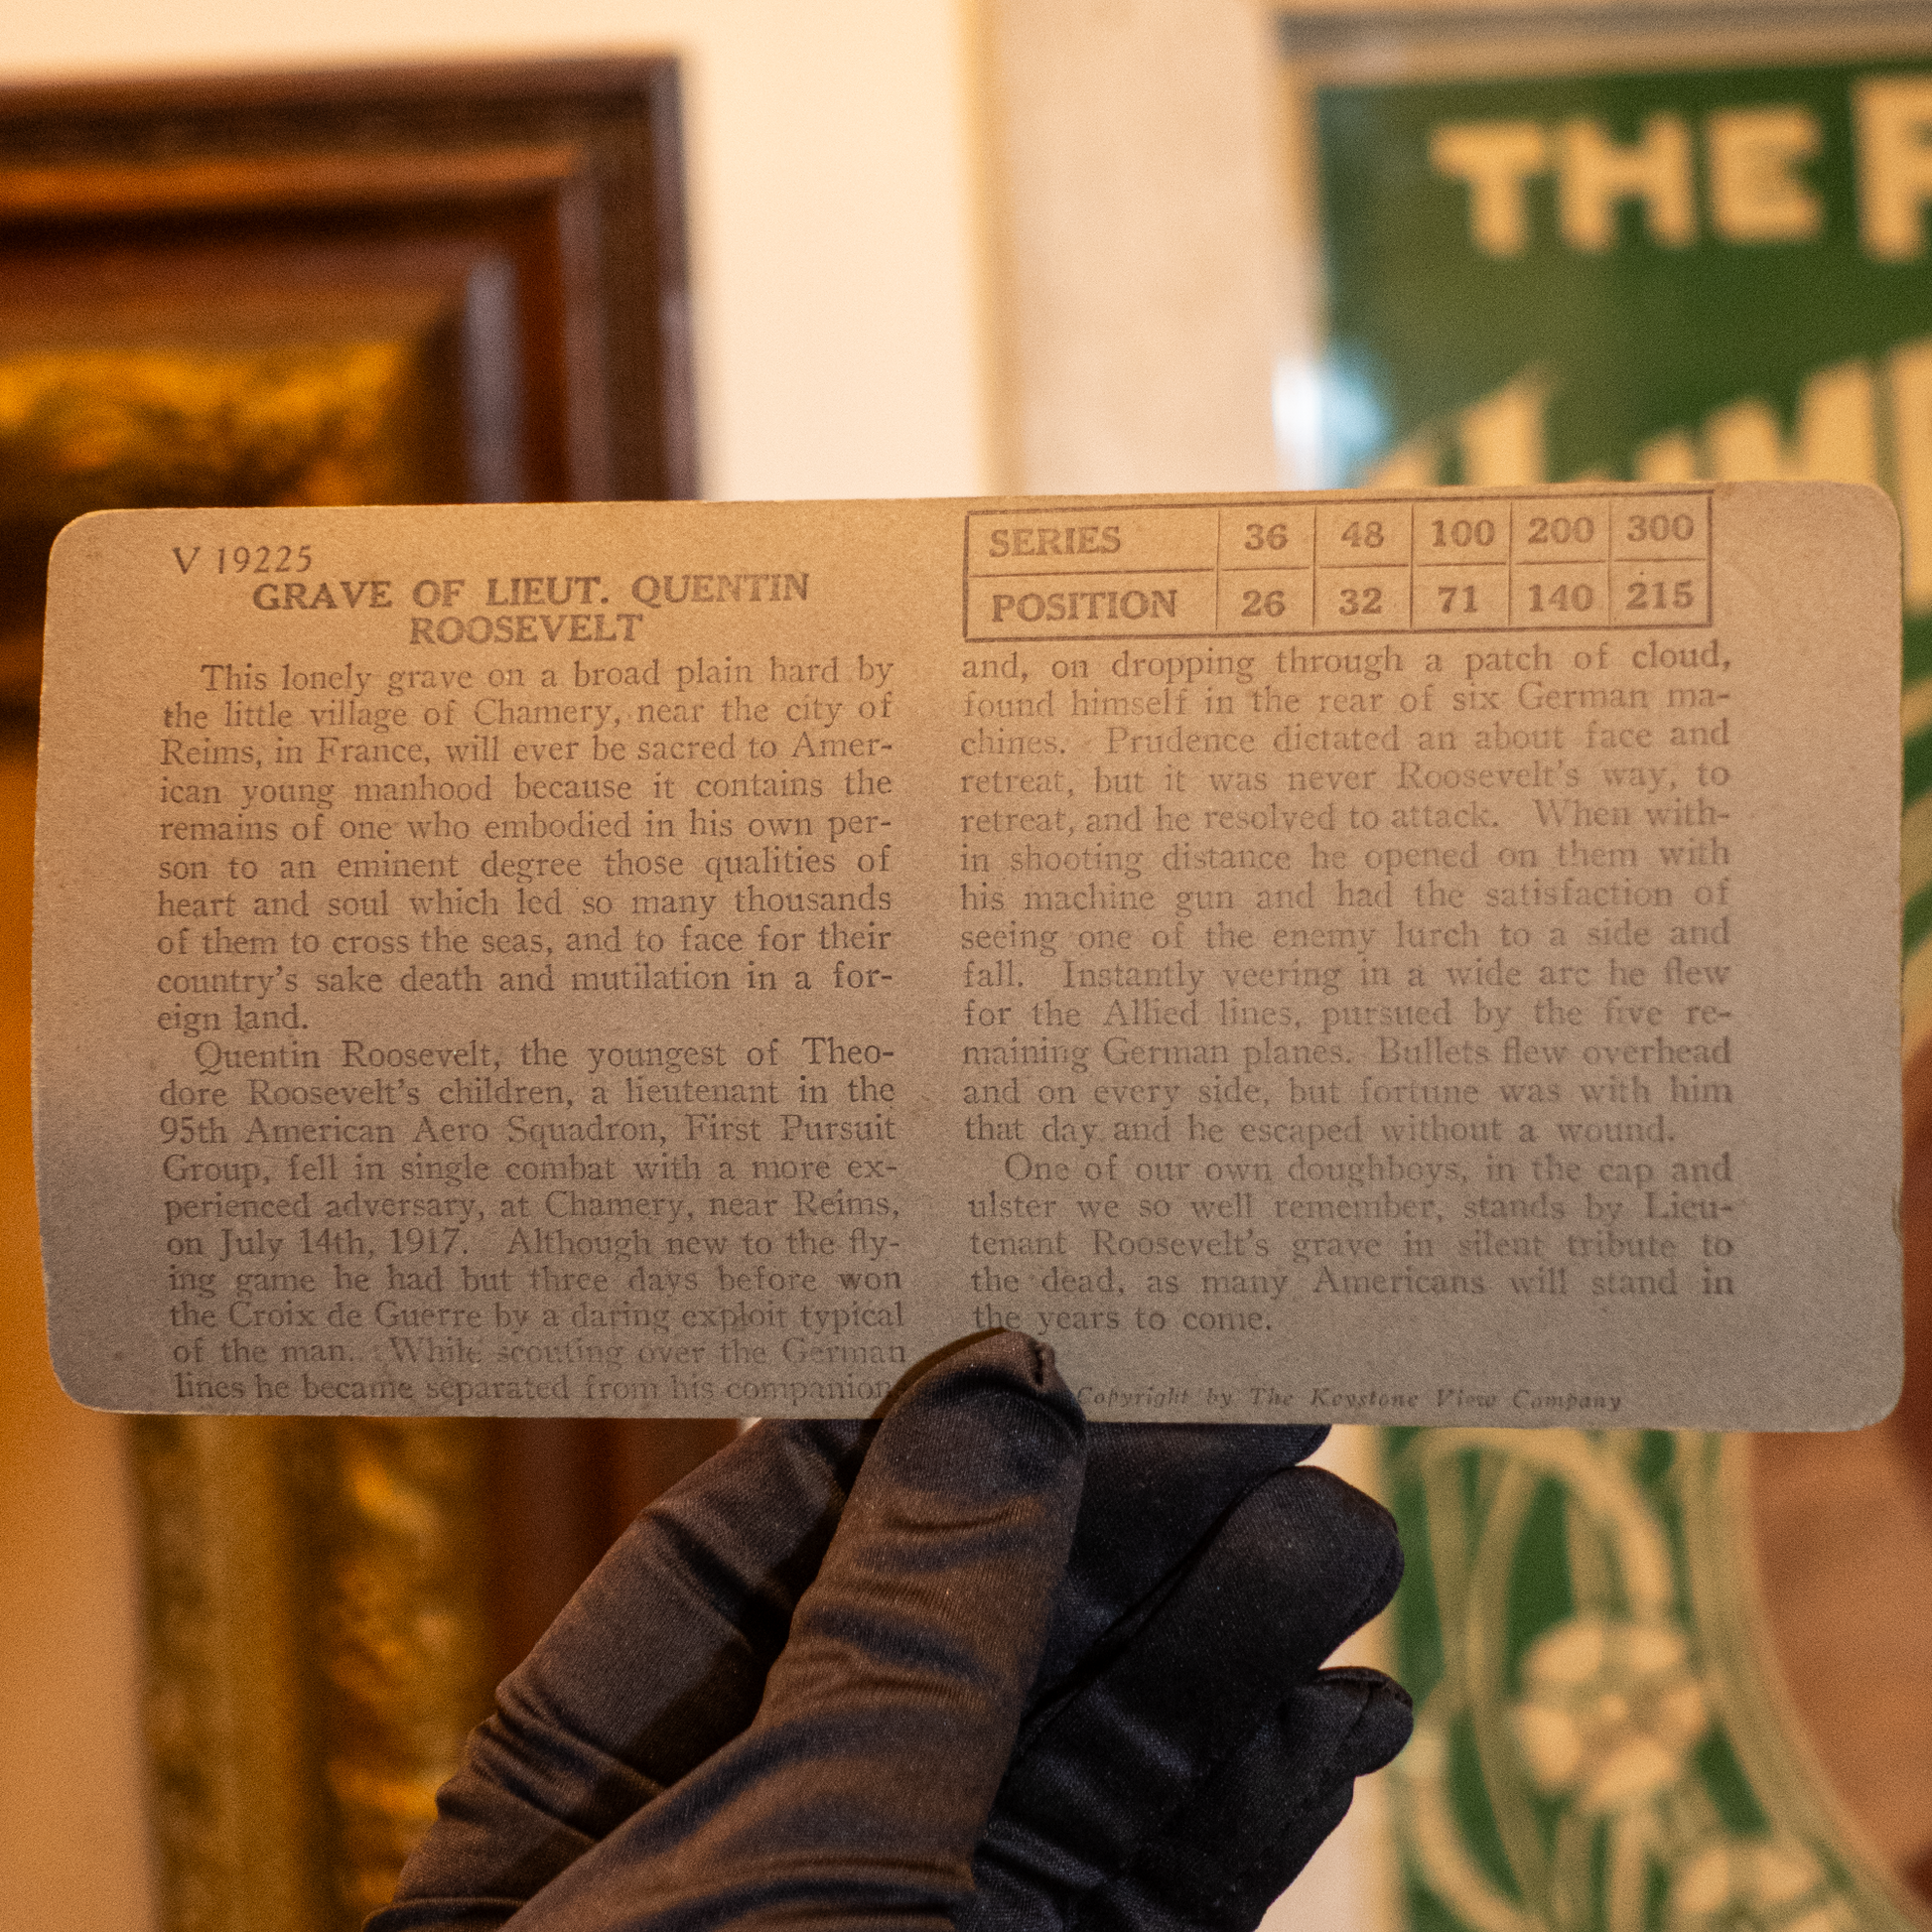 THE
V 19225
GRAVE OF LIEUT. QUENTIN
ROOSEVELT
This lonely grave on a broad plain hard by
the little village of Chamery, near the city of
Reims, in France, will ever be sacred to Amer-
ican young manhood because it contains the
remains of one who embodied in his own per-
son to an eminent degree those qualities of
heart and soul which led so many thousands
of them to cross the seas, and to face for their
country's sake death and mutilation in a for-
eign land.
Quentin Roosevelt, the youngest of Theo-
dore Roosevelt's children, a lieutenant in the
95th American Aero Squadron, First Pursuit
Group, fell in single combat with a more ex-
perienced adversary, at Chamery, near Reims,
on July 14th, 1917. Although new to the fly-
ing game he had but three days before won
the Croix de Guerre by a daring exploit typical
of the man. While scouting over the German
lines he became separated from his companion
SERIES 36 48 100 200 300
POSITION 26 32 71 140 215
and, on dropping through a patch of cloud,
found himself in the rear of six German ma-
chines. Prudence dictated an about face and
retreat, but it was never Roosevelt's way, to
retreat, and he resolved to attack. When with-
in shooting distance he opened on them with
his machine gun and had the satisfaction of
seeing one of the enemy lurch to a side and
fall. Instantly veering in a wide arc he flew
for the Allied lines, pursued by the five re-
maining German planes. Bullets flew overhead
and on every side, but fortune was with him
that day and he escaped without a wound.
One of our own doughboys, in the cap and
ulster we so well remember, stands by Lieu-
tenant Roosevelt's grave in silent tribute to
the dead, as many Americans will stand in
the years to come.
Copyright by The Keystone View Company